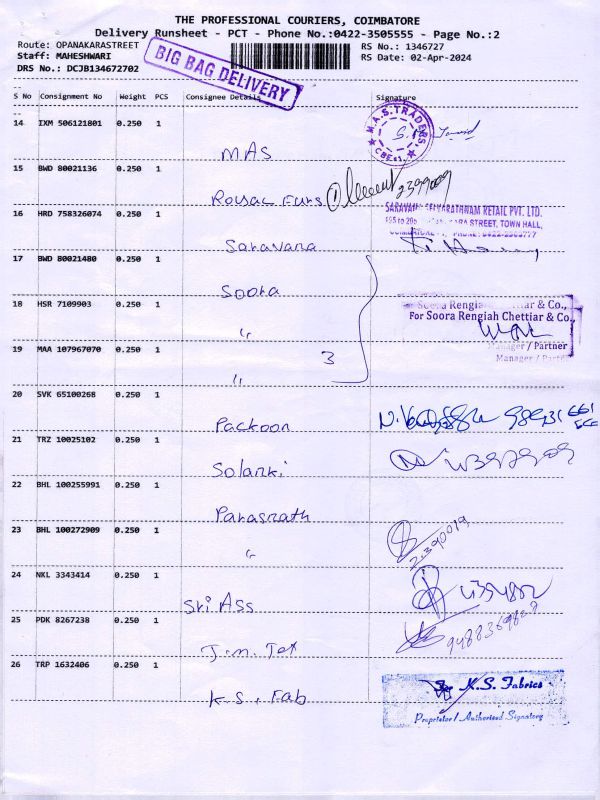 THE PROFESSIONAL COURIERS, COIMBATORE
Delivery Runsheet - PCT - Phone No.:0422-3505555 - Page No.:2
Route: OPANAKARASTREET
RS No.: 1346727
Staff: MAHESHWARI
RS Date: 02-Apr-2024
DRS No.: DCJB134672702
BIG BAG DELIVERY
S No Consignment No Weight PCS Consignee Details Signature
14 IXM 506121801 0.250 1
M.A.S. TRADERS
CBE-1
MAS
15 BWD 80021136 0.250 1
Furs
2399009
16 HRD 758326074 0.250 1
RETAIL PVT. LTD.
STREET, TOWN HALL,
Saravana
17 BWD 80021480 0.250 1
Soora
18 HSR 7109903 0.250 1
Soora Rengiah Chettiar & Co.,
For Soora Rengiah Chettiar & Co.,
"
Manager / Partner
Manager / Partner
19 MAA 107967070 0.250 1
3
"
20 SVK 65100268 0.250 1
Packoon
21 TRZ 10025102 0.250 1
Solanki
22 BHL 100255991 0.250 1
Parasnath
23 BHL 100272909 0.250 1
"
2390019
24 NKL 3343414 0.250 1
Sri Ass
25 PDK 8267238 0.250 1
J.M. Tex
26 TRP 1632406 0.250 1
For K.S. Fabrics
K.S. Fab
Proprietor / Authorised Signatory